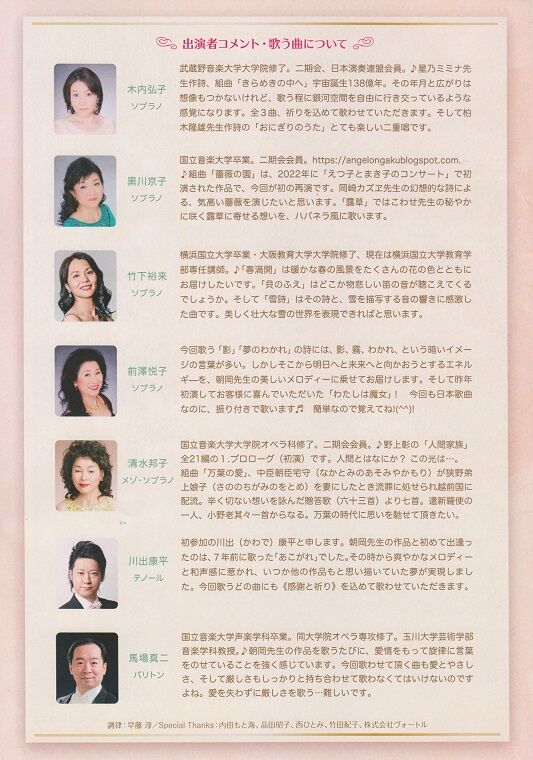 出演者コメント・歌う曲について
木内弘子
ソプラノ
武蔵野音楽大学大学院修了。二期会、日本演奏連盟会員。♪星乃ミミナ先
生作詩、組曲「きらめきの中へ」宇宙誕生138億年。その年月と広がりは
想像もつかないけれど、歌う程に銀河空間を自由に行き交っているような
感覚になります。全３曲、祈りを込めて歌わせていただきます。そして柏
木隆雄先生作詩の「おにぎりのうた」とても楽しい二重唱です。
黒川京子
ソプラノ
国立音楽大学卒業。二期会会員。https://angelongakublogspot.com.
♪組曲「薔薇の園」は、2022年に「えつ子とまき子のコンサート」で初
演された作品で、今回が初の再演です。岡崎カズヱ先生の幻想的な詩によ
る、気高い薔薇を演じたいと思います。「露草」ではこわせ先生の秘やか
に咲く露草に寄せる想いを、ハバネラ風に歌います。
竹下裕来
ソプラノ
横浜国立大学卒業・大阪教育大学大学院修了、現在は横浜国立大学教育学
部専任講師。♪「春満開」は暖かな春の風景をたくさんの花の色とともに
お届けしたいです。「貝のふえ」はどこか物悲しい笛の音が聴こえてくる
でしょうか。そして「雪詩」はその詩と、雪を描写する音の響きに感激し
た曲です。美しく壮大な雪の世界を表現できればと思います。
前澤悦子
ソプラノ
今回歌う「影」「夢のわかれ」の詩には、影、霧、わかれ、という暗いイメー
ジの言葉が多い。しかしそこから明日へと未来へと向かおうとするエネル
ギーを、朝岡先生の美しいメロディーに乗せてお届けします。そして昨年
初演してお客様に喜んでいただいた「わたしは魔女」！　今回も日本歌曲
なのに、振り付きで歌います♬　簡単なので覚えてね!(^^)!
清水邦子
メゾ・ソプラノ
国立音楽大学大学院オペラ科修了。二期会会員。♪野上彰の「人間家族」
全21編の１.プロローグ（初演）です。人間とはなにか？ この光は…。
組曲「万葉の愛」、中臣朝臣宅守（なかとみのあそみやかもり）が狭野弟
上娘子（さののちがみのをとめ）を妻にしたとき流罪に処せられ越前国に
配流。辛く切ない想いを詠んだ贈答歌（六十三首）より七首。遣新羅使の
一人、小野老其々一首からなる。万葉の時代に思いを馳せて頂きたい。
川出康平
テノール
初参加の川出（かわで）康平と申します。朝岡先生の作品と初めて出逢っ
たのは、７年前に歌った「あこがれ」でした。その時から爽やかなメロディー
と和声感に惹かれ、いつか他の作品もと思い描いていた夢が実現しまし
た。今回歌うどの曲にも《感謝と祈り》を込めて歌わせていただきます。
馬場眞二
バリトン
国立音楽大学声楽学科卒業。同大学院オペラ専攻修了。玉川大学芸術学部
音楽学科教授。♪朝岡先生の作品を歌うたびに、愛情をもって旋律に言葉
をのせていることを強く感じています。今回歌わせて頂く曲も愛とやさし
さ、そして厳しさもしっかりと持ち合わせて歌わなくてはいけないのです
よね。愛を失わずに厳しさを歌う…難しいです。
調律：早藤 淳／Special Thanks：内田もと海、品田昭子、西ひとみ、竹田紀子、株式会社ヴォートル